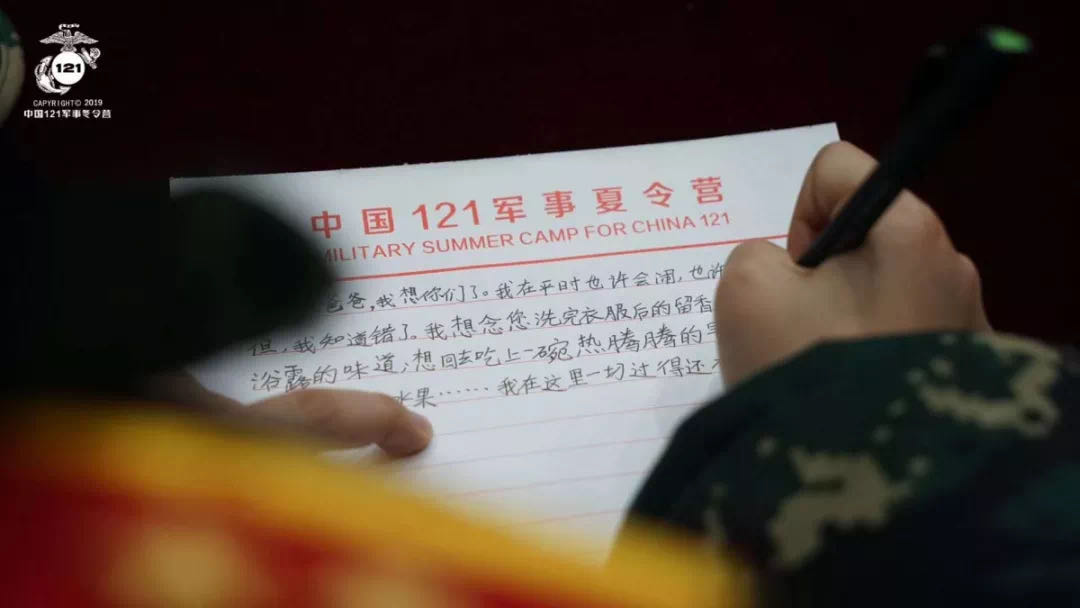 121
CAPYRIGHT© 2019
中国121军事冬令营
中国121军事夏令营
MILITARY SUMMER CAMP FOR CHINA 121
爸，我想你们了。我在平时也许会闹，也许
但，我知道错了。我想念您洗完衣服后的留香
浴露的味道，想回去吃上一碗热腾腾的
水果……我在这里一切过得还